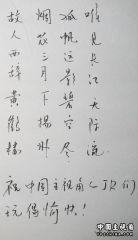 故人西辞黄鹤楼
烟花三月下扬州
孤帆远影碧空尽
唯见长江天际流
祝中国主视角(JR们)
玩得愉快!